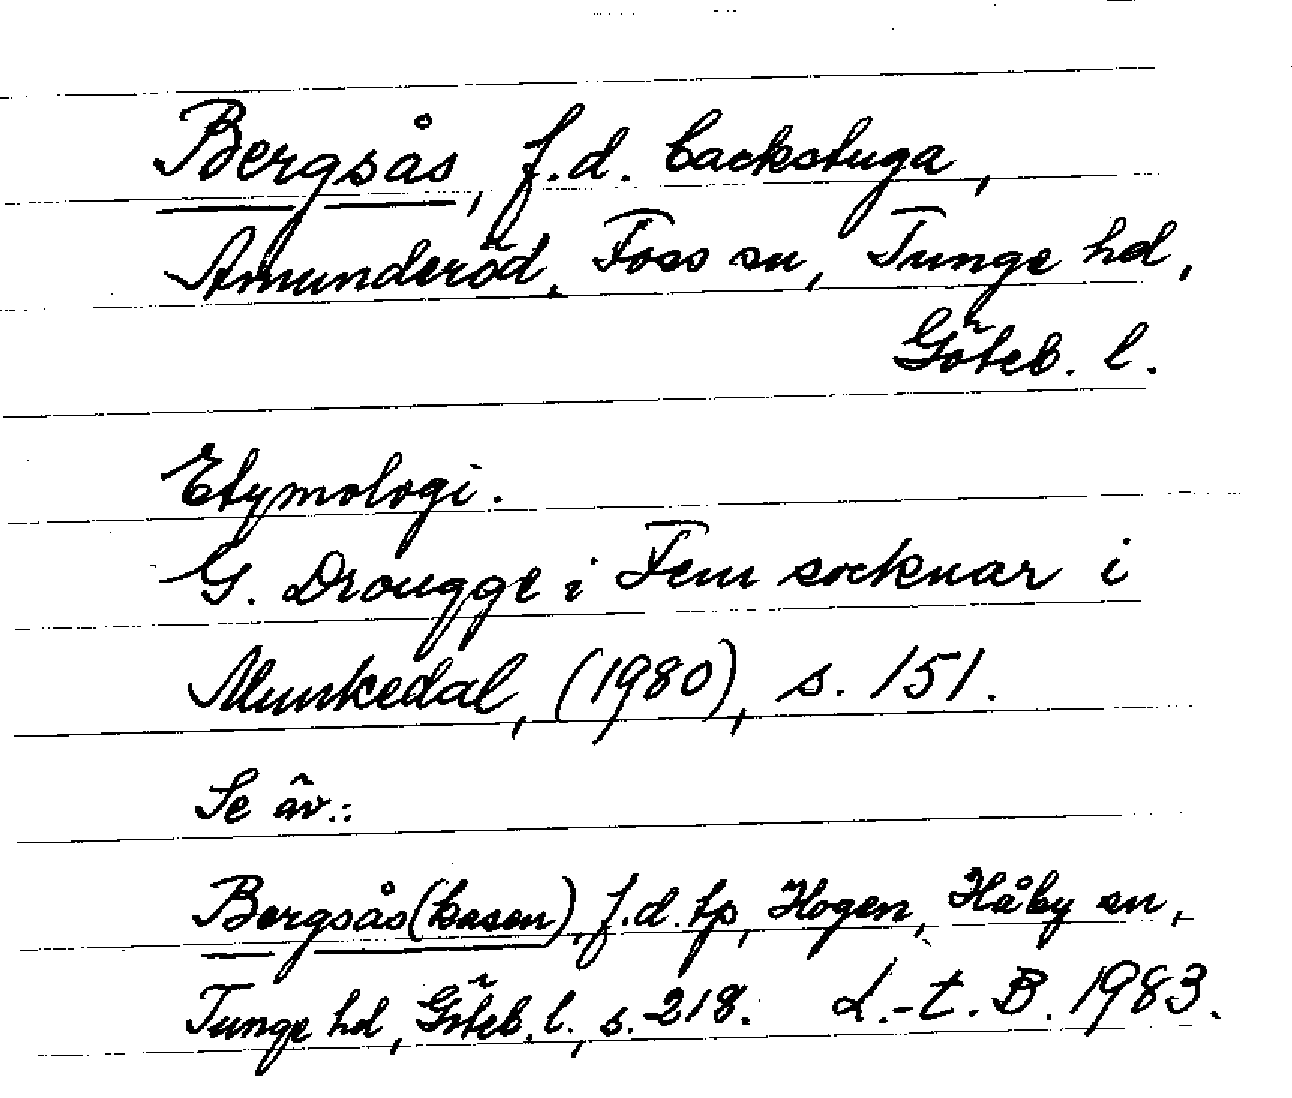 Bergsås, f.d. backstuga,
Amunderöd, Foss sn, Tunge hd,
Göteb. l.
Etymologi.
G. Drougge i Fem socknar i
Munkedal, (1980), s. 151.
Se äv.:
Bergsås(kasen), f.d. tp, Hogen, Håby sn,
Tunge hd, Göteb. l., s. 218. L.-t. B. 1983.